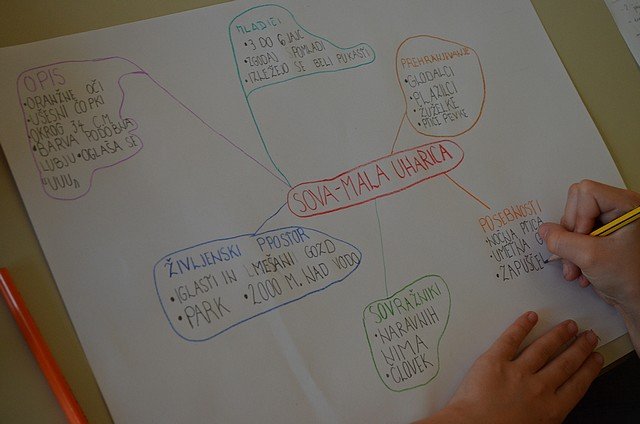 MLADIČI
• 3 DO 6 JAJC
• ZGODAJ POMLADI
• IZLEŽEJO SE BELI PUHASTI
OPIS
• ORANŽNE OČI
• UŠESNI ČOPKI
OKROG 34 CM
• BARVA PODOBNA
LUBJU • OGLAŠA SE
"UUU"
PREHRANJEVANJE
• GLODALCI
• PLAZILCI
• ŽUŽELKE
• PTICE PEVKE
SOVA-MALA UHARICA
POSEBNOSTI
• NOČNA PTICA
• UMETNA G
• ZAPUŠČE
ŽIVLJENSKI PROSTOR
• IGLASTI IN MEŠANI GOZD
• PARK • 2000 M. NAD VODO
SOVRAŽNIKI
• NARAVNIH
NIMA
• ČLOVEK